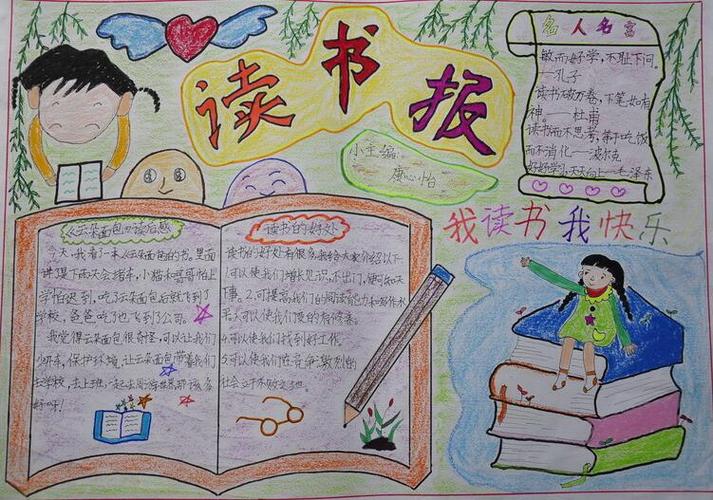 读书报
小主编:
康心怡
名人名言
敏而好学,不耻下问。
——孔子
读书破万卷,下笔如有
神。——杜甫
读书而不思考,等于吃饭
而不消化——波尔克
好好学习,天天向上——毛泽东
我读书我快乐
《云朵面包》读后感
今天,我看了一本《云朵面包》的书。里面
讲了下雨天会堵车,小猫和哥哥怕上
学怕迟到,吃了云朵面包后就飞到了
学校,爸爸吃了也飞到了公司。
我觉得云朵面包很奇怪,可以让我们
少开车,保护环境,让云朵面包带着我们
去学校,去上班,一起去街游世界那该多
好呀!
读书的好处
读书的好处有很多,我给大家介绍以下
1.可以使我们增长见识,不出门,便可知天
下事。2.可提高我们的阅读能力和写作水
平。3.可以使我们变的有修养。
4.可以使我们找到好工作。
5.可以使我们在竞争激烈的
社会立于不败之地。